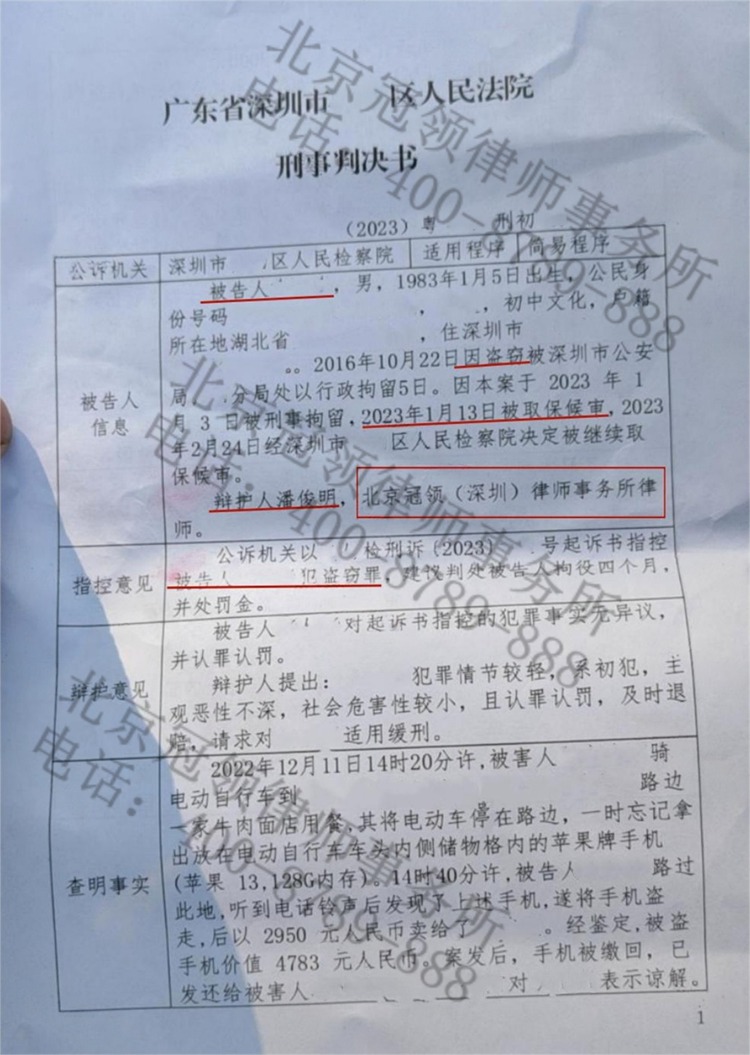 广东省深圳市 区人民法院
刑事判决书
(2023) 粤 刑初
公诉机关 深圳市 区人民检察院 适用程序 简易程序
被告人 ,男,1983年1月5日出生,公民身
份号码 , ,初中文化,户籍
所在地湖北省 ,住深圳市
。2016年10月22日因盗窃被深圳市公安
局 分局处以行政拘留5日。因本案于 2023 年 1
月 3 日被刑事拘留,2023年1月13日被取保候审,2023
年2月24日经深圳市 区人民检察院决定被继续取
保候审。
辩护人潘俊明,北京冠领(深圳)律师事务所律
师。
被告人
信息
公诉机关以 检刑诉(2023) 号起诉书指控
被告人 犯盗窃罪,建议判处被告人拘役四个月,
并处罚金。
指控意见
被告人 对起诉书指控的犯罪事实无异议,
并认罪认罚。
辩护人提出: 犯罪情节较轻,系初犯,主
观恶性不深,社会危害性较小,且认罪认罚,及时退
赔,请求对 适用缓刑。
辩护意见
2022年12月11日14时20分许,被害人 骑
电动自行车到 路边
一家牛肉面店用餐,其将电动车停在路边,一时忘记拿
出放在电动自行车车头内侧储物格内的苹果牌手机
(苹果 13,128G内存)。14时40分许,被告人 路过
此地,听到电话铃声后发现了上述手机,遂将手机盗
走,后以 2950 元人民币卖给了 。经鉴定,被盗
手机价值 4783 元人民币。案发后,手机被缴回,已
发还给被害人 对 表示谅解。
查明事实
1
北京冠领律师事务所
电话:400-8789-888
北京冠领律师事务所
电话:400-8789-888
北京冠领律师事务所
电话:400-8789-888